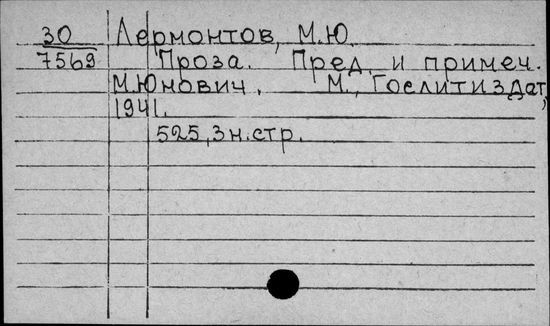 30 Лермонтов, М.Ю.
7569 Проза. Пред. и примеч.
М.Юнович. М., Гослитиздат,
1941.
525,3н.стр.